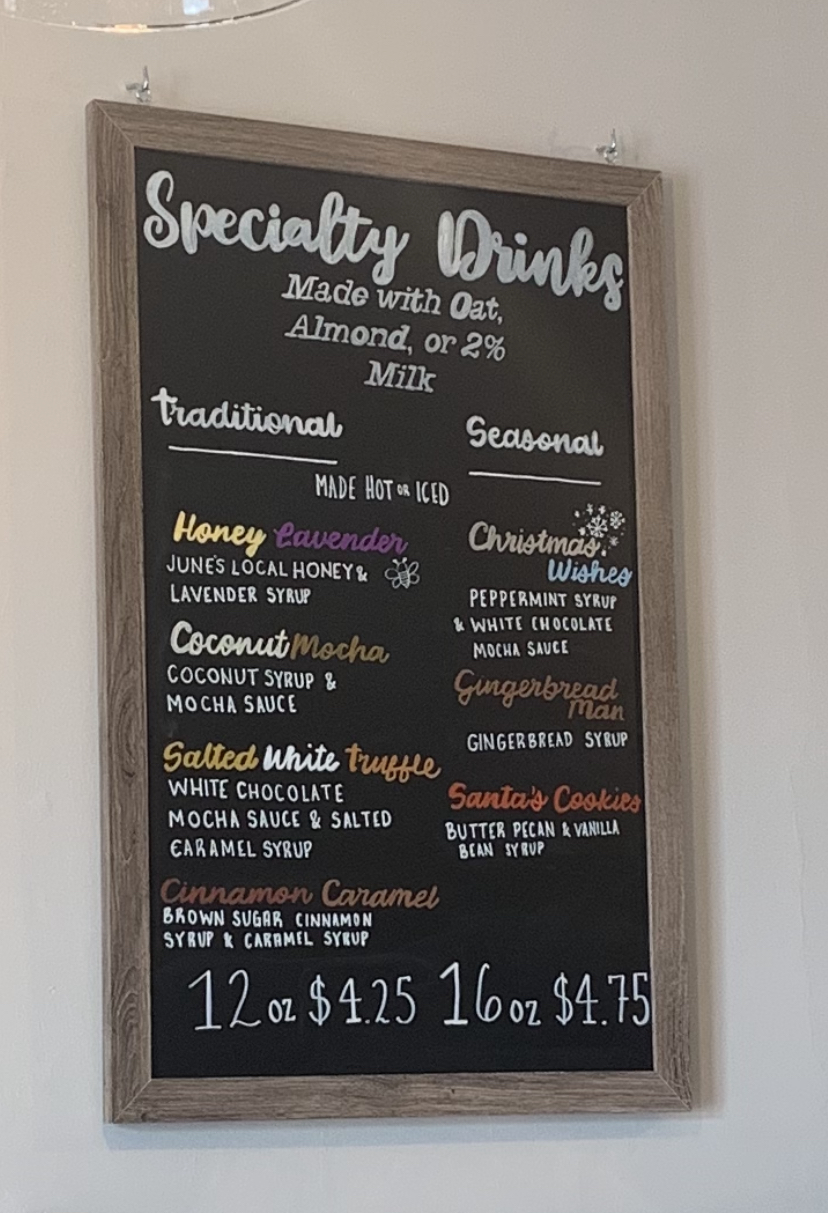 Specialty Drinks
Made with Oat,
Almond, or 2%
Milk
Traditional
Seasonal
MADE HOT OR ICED
Honey Lavender
JUNE'S LOCAL HONEY &
LAVENDER SYRUP
Coconut Mocha
COCONUT SYRUP &
MOCHA SAUCE
Salted White Truffle
WHITE CHOCOLATE
MOCHA SAUCE & SALTED
CARAMEL SYRUP
Cinnamon Caramel
BROWN SUGAR CINNAMON
SYRUP & CARAMEL SYRUP
Christmas
Wishes
PEPPERMINT SYRUP
& WHITE CHOCOLATE
MOCHA SAUCE
Gingerbread
Man
GINGERBREAD SYRUP
Santa's Cookies
BUTTER PECAN & VANILLA
BEAN SYRUP
12 oz $4.25 16 oz $4.75